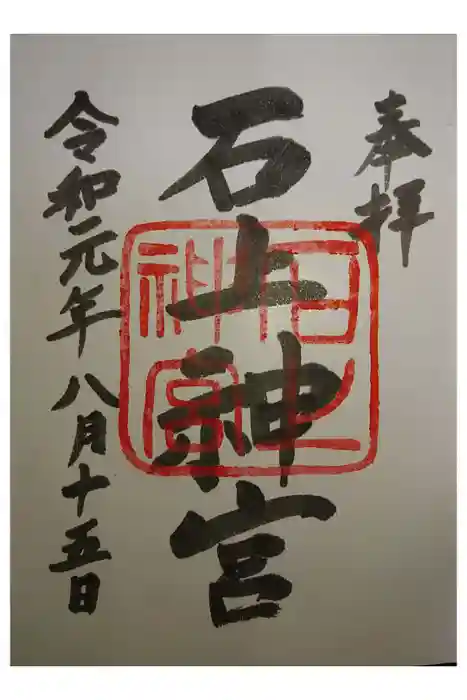 奉拝
石上神宮
石上
神宮
令和元年八月十五日